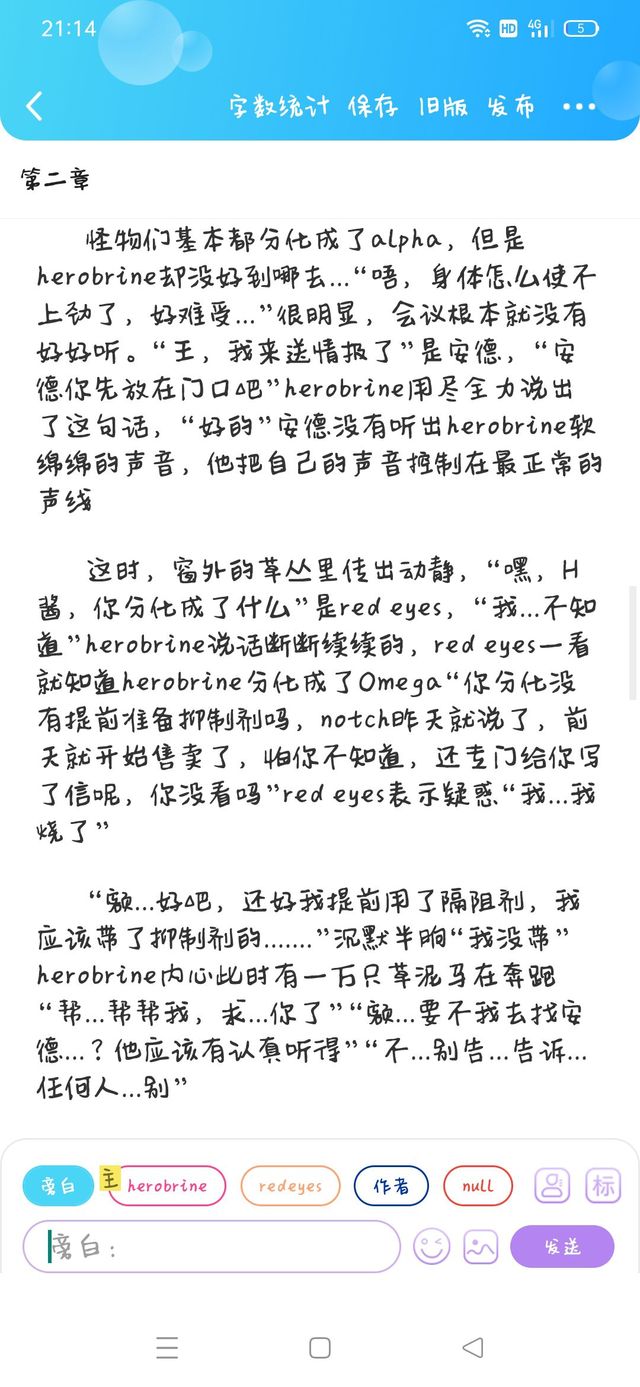 21:14
HD 4G 5
字数统计 保存 旧版 发布 •••
第二章
怪物们基本都分化成了alpha，但是
herobrine却没好到哪去...“唔，身体怎么使不
上劲了，好难受...”很明显，会议根本就没有
好好听。“王，我来送情报了”是安德，“安
德你先放在门口吧”herobrine用尽全力说出
了这句话，“好的”安德没有听出herobrine软
绵绵的声音，他把自己的声音控制在最正常的
声线
这时，窗外的草丛里传出动静，“嘿，H
酱，你分化成了什么”是red eyes，“我...不知
道”herobrine说话断断续续的，red eyes一看
就知道herobrine分化成了Omega“你分化没
有提前准备抑制剂吗，notch昨天就说了，前
天就开始售卖了，怕你不知道，还专门给你写
了信呢，你没看吗”red eyes表示疑惑“我...我
烧了”
“额...好吧，还好我提前用了隔阻剂，我
应该带了抑制剂的.......”沉默半晌“我没带”
herobrine内心此时有一万只草泥马在奔跑
“帮...帮帮我，求...你了”“额...要不我去找安
德...？他应该有认真听得”“不...别告...告诉...
任何人...别”
旁白 主 herobrine redeyes 作者 null 标
旁白： 发送